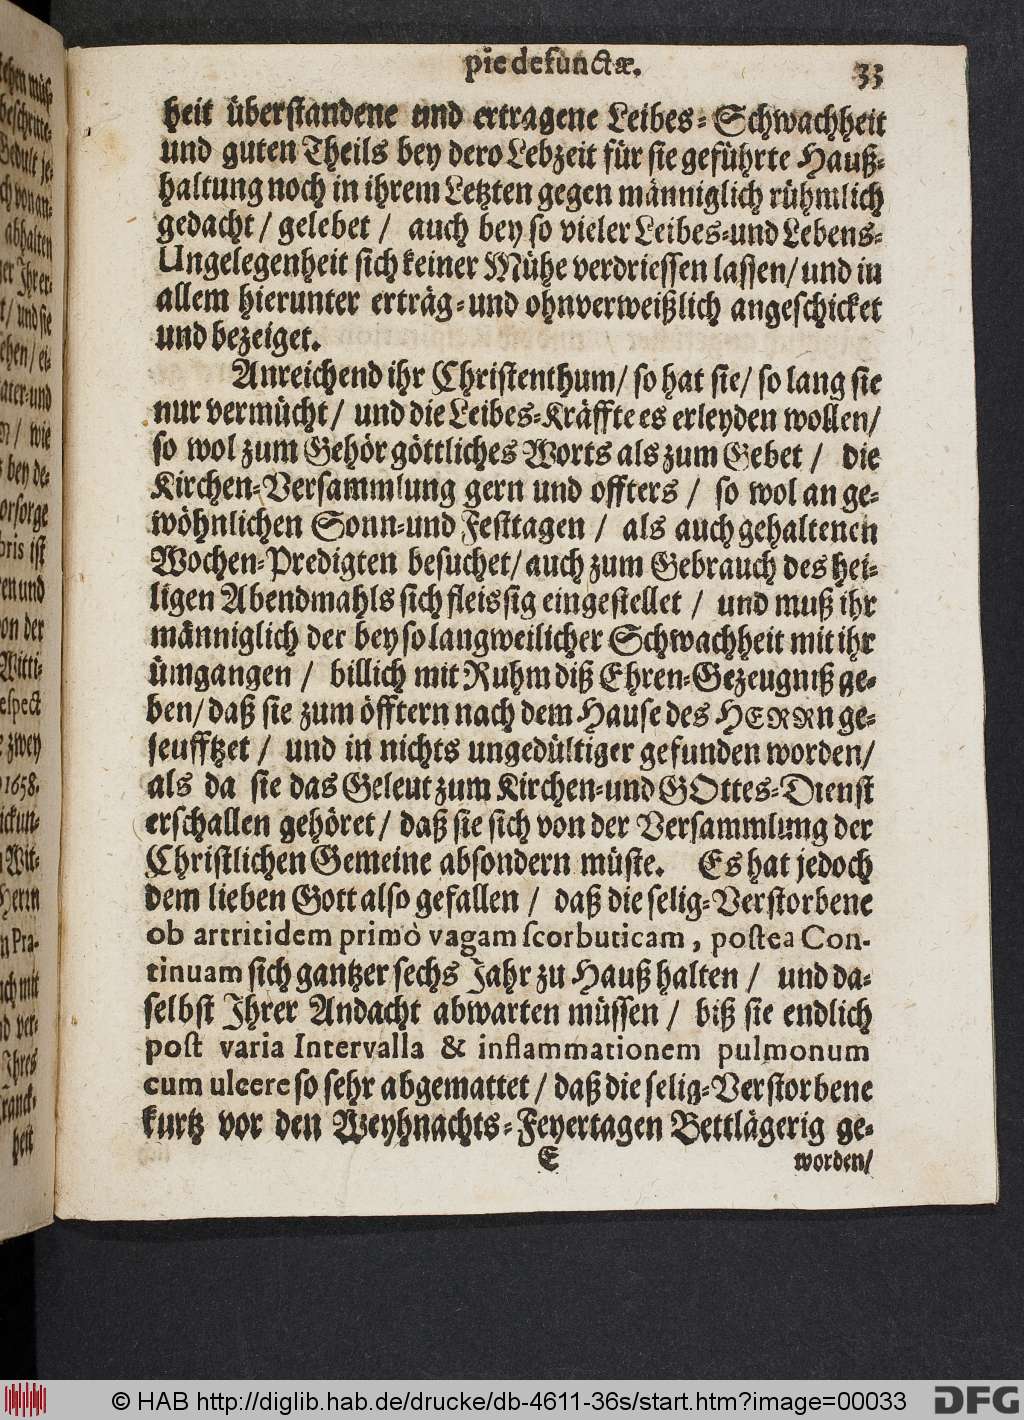 pie defunctæ.
33
heit überstandene und ertragene Leibes-Schwachheit
und guten Theils bey dero Lebzeit für sie geführte Hauß-
haltung noch in ihrem Letzten gegen männiglich rühmlich
gedacht / gelebet / auch bey so vieler Leibes-und Lebens-
Ungelegenheit sich keiner Mühe verdriessen lassen / und in
allem hierunter erträg-und ohnverweißlich angeschicket
und bezeiget.
Anreichend ihr Christenthum / so hat sie / so lang sie
nur vermücht / und die Leibes-Kräffte es erleyden wollen /
so wol zum Gehör göttliches Worts als zum Gebet / die
Kirchen-Versammlung gern und offters / so wol an ge-
wöhnlichen Sonn-und Festtagen / als auch gehaltenen
Wochen-Predigten besuchet / auch zum Gebrauch des hei-
ligen Abendmahls sich fleissig eingestellet / und muß ihr
männiglich der bey so langweilicher Schwachheit mit ihr
ümgangen / billich mit Ruhm diß Ehren-Gezeugniß ge-
ben / daß sie zum öfftern nach dem Hause des HERRn ge-
seufftzet / und in nichts ungedültiger gefunden worden /
als da sie das Geleut zum Kirchen-und GOttes-Dienst
erschallen gehöret / daß sie sich von der Versammlung der
Christlichen Gemeine absondern müste. Es hat jedoch
dem lieben Gott also gefallen / daß die selig-Verstorbene
ob artritidem primò vagam scorbuticam, postea Con-
tinuam sich gantzer sechs Jahr zu Hauß halten / und da-
selbst Ihrer Andacht abwarten müssen / biß sie endlich
post varia Intervalla & inflammationem pulmonum
cum ulcere so sehr abgemattet / daß die selig-Verstorbene
kurtz vor den Weyhnachts-Feyertagen Bettlägerig ge-
E
worden /
© HAB http://diglib.hab.de/drucke/db-4611-36s/start.htm?image=00033
DFG